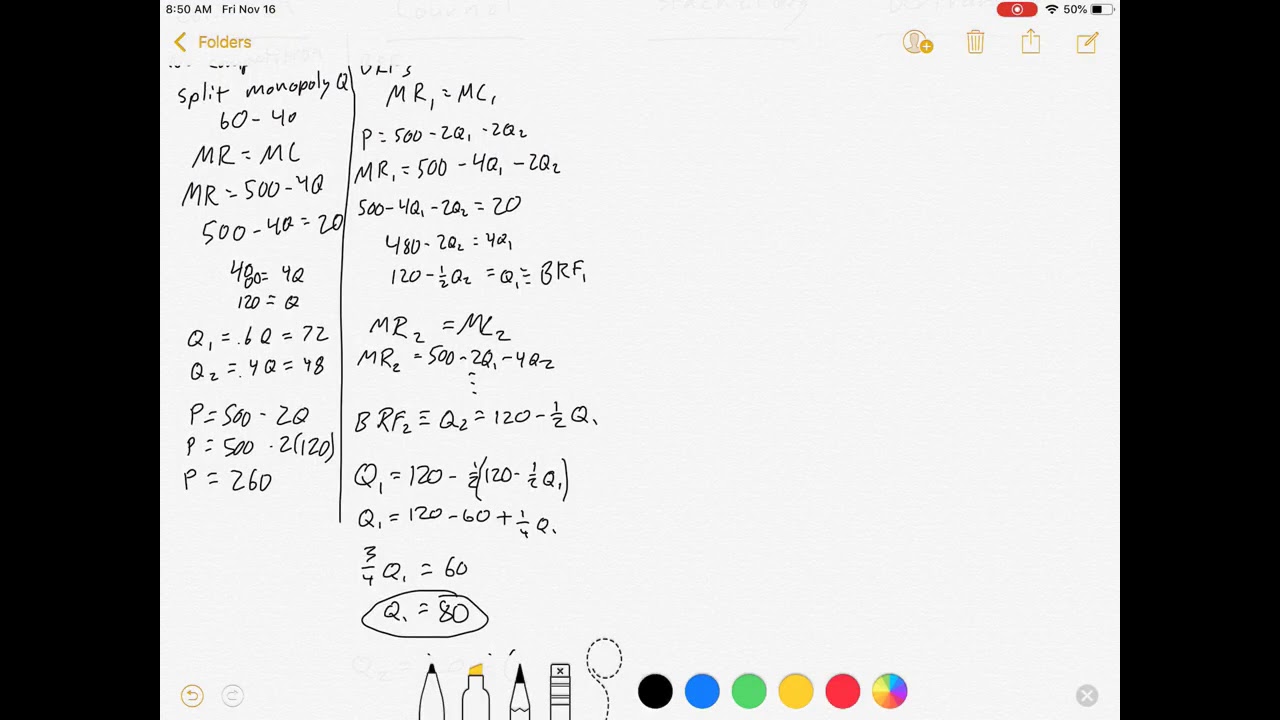 8:50 AM Fri Nov 16
50%
Folders
split monopoly Q
60 - 40
MR = MC
MR = 500 - 4Q
500 - 4Q = 20
480 = 4Q
120 = Q
Q₁ = .6Q = 72
Q₂ = .4Q = 48
P = 500 - 2Q
P = 500 - 2(120)
P = 260
BRF's
MR₁ = MC₁
P = 500 - 2Q₁ - 2Q₂
MR₁ = 500 - 4Q₁ - 2Q₂
500 - 4Q₁ - 2Q₂ = 20
480 - 2Q₂ = 4Q₁
120 - ½Q₂ = Q₁ ≡ BRF₁
MR₂ = MC₂
MR₂ = 500 - 2Q₁ - 4Q₂
⋮
BRF₂ ≡ Q₂ = 120 - ½Q₁
Q₁ = 120 - ½(120 - ½Q₁)
Q₁ = 120 - 60 + ¼Q₁
¾Q₁ = 60
Q₁ = 80